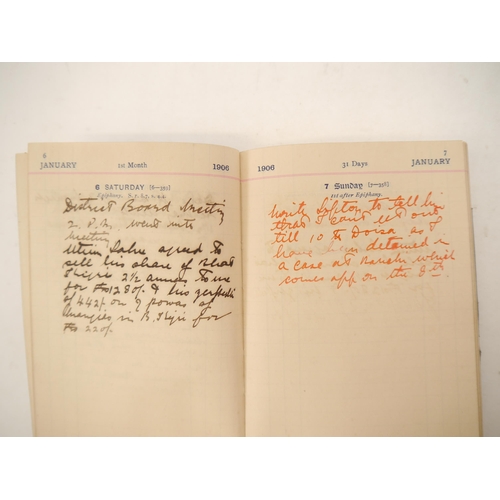 6
JANUARY
1st Month
1906
6 SATURDAY [6—359]
Epiphany.
District Board Meeting
2 P.M. went into
meeting
Sahu agreed to
sell his share of
2½ annas to me
for Rs 1280/- & his
of 442/- on 9 powas of
in B. for
Rs 220/-
7
1906
31 Days
JANUARY
7 Sunday [7—358]
1st after Epiphany.
Write to tell him
that I can't set out
till 10th Doisa as I
have been detained in
a case at Ranchi which
comes app on the 8th